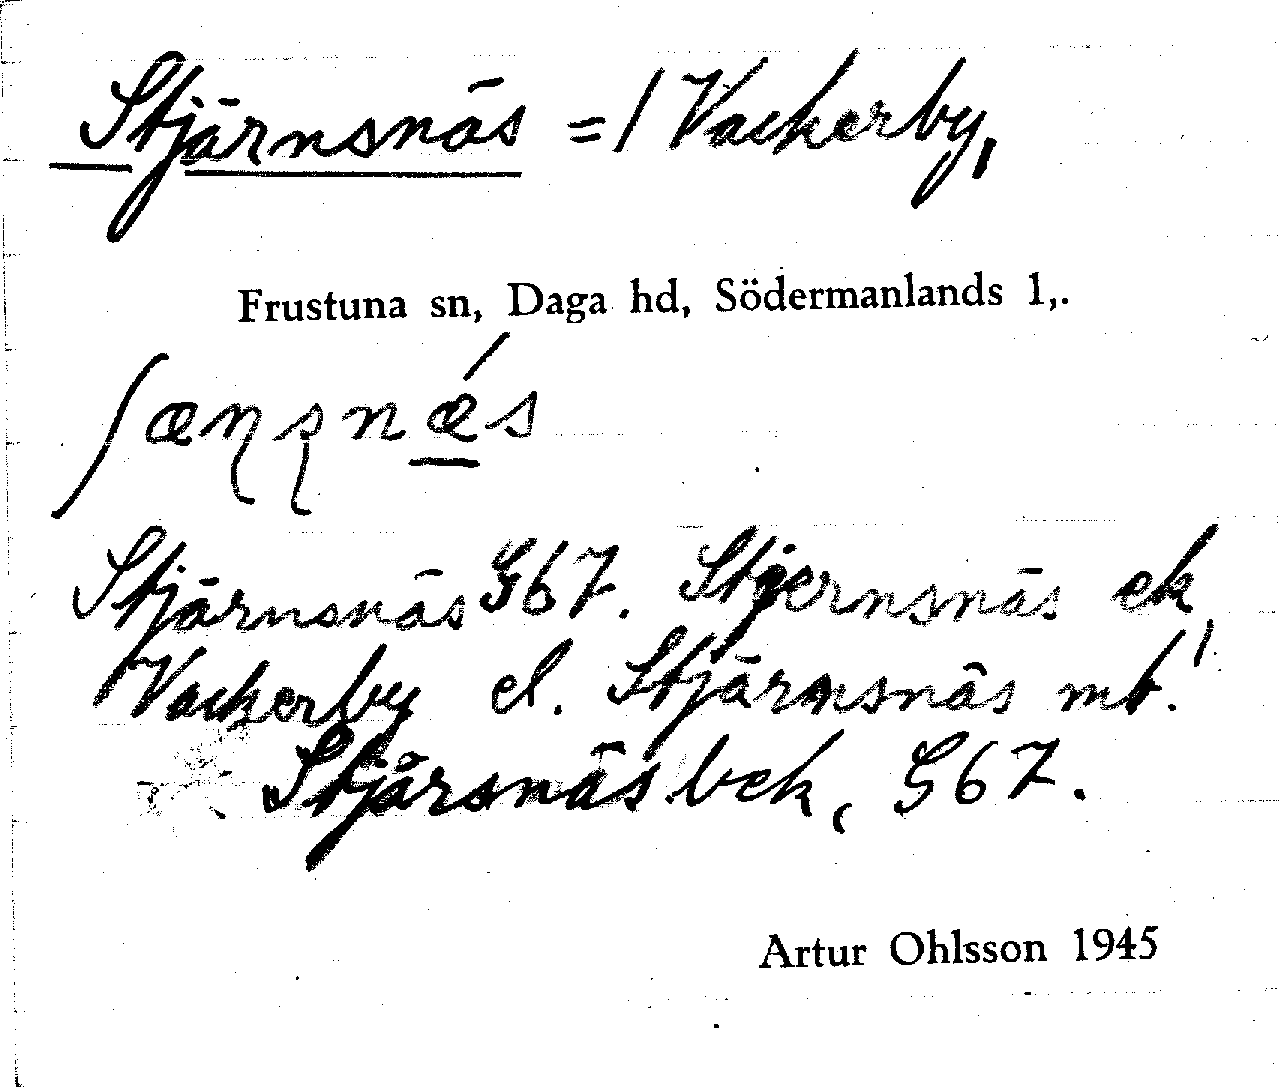 Stjärnsnäs = 1 Vackerby,
Frustuna sn, Daga hd, Södermanlands l,.
ʃæɳʂnǽs
Stjärnsnäs G67. Stjernsnäs ek,
Vackerby el. Stjärnsnäs mb.
Stjärsnäs bek, G67.
Artur Ohlsson 1945